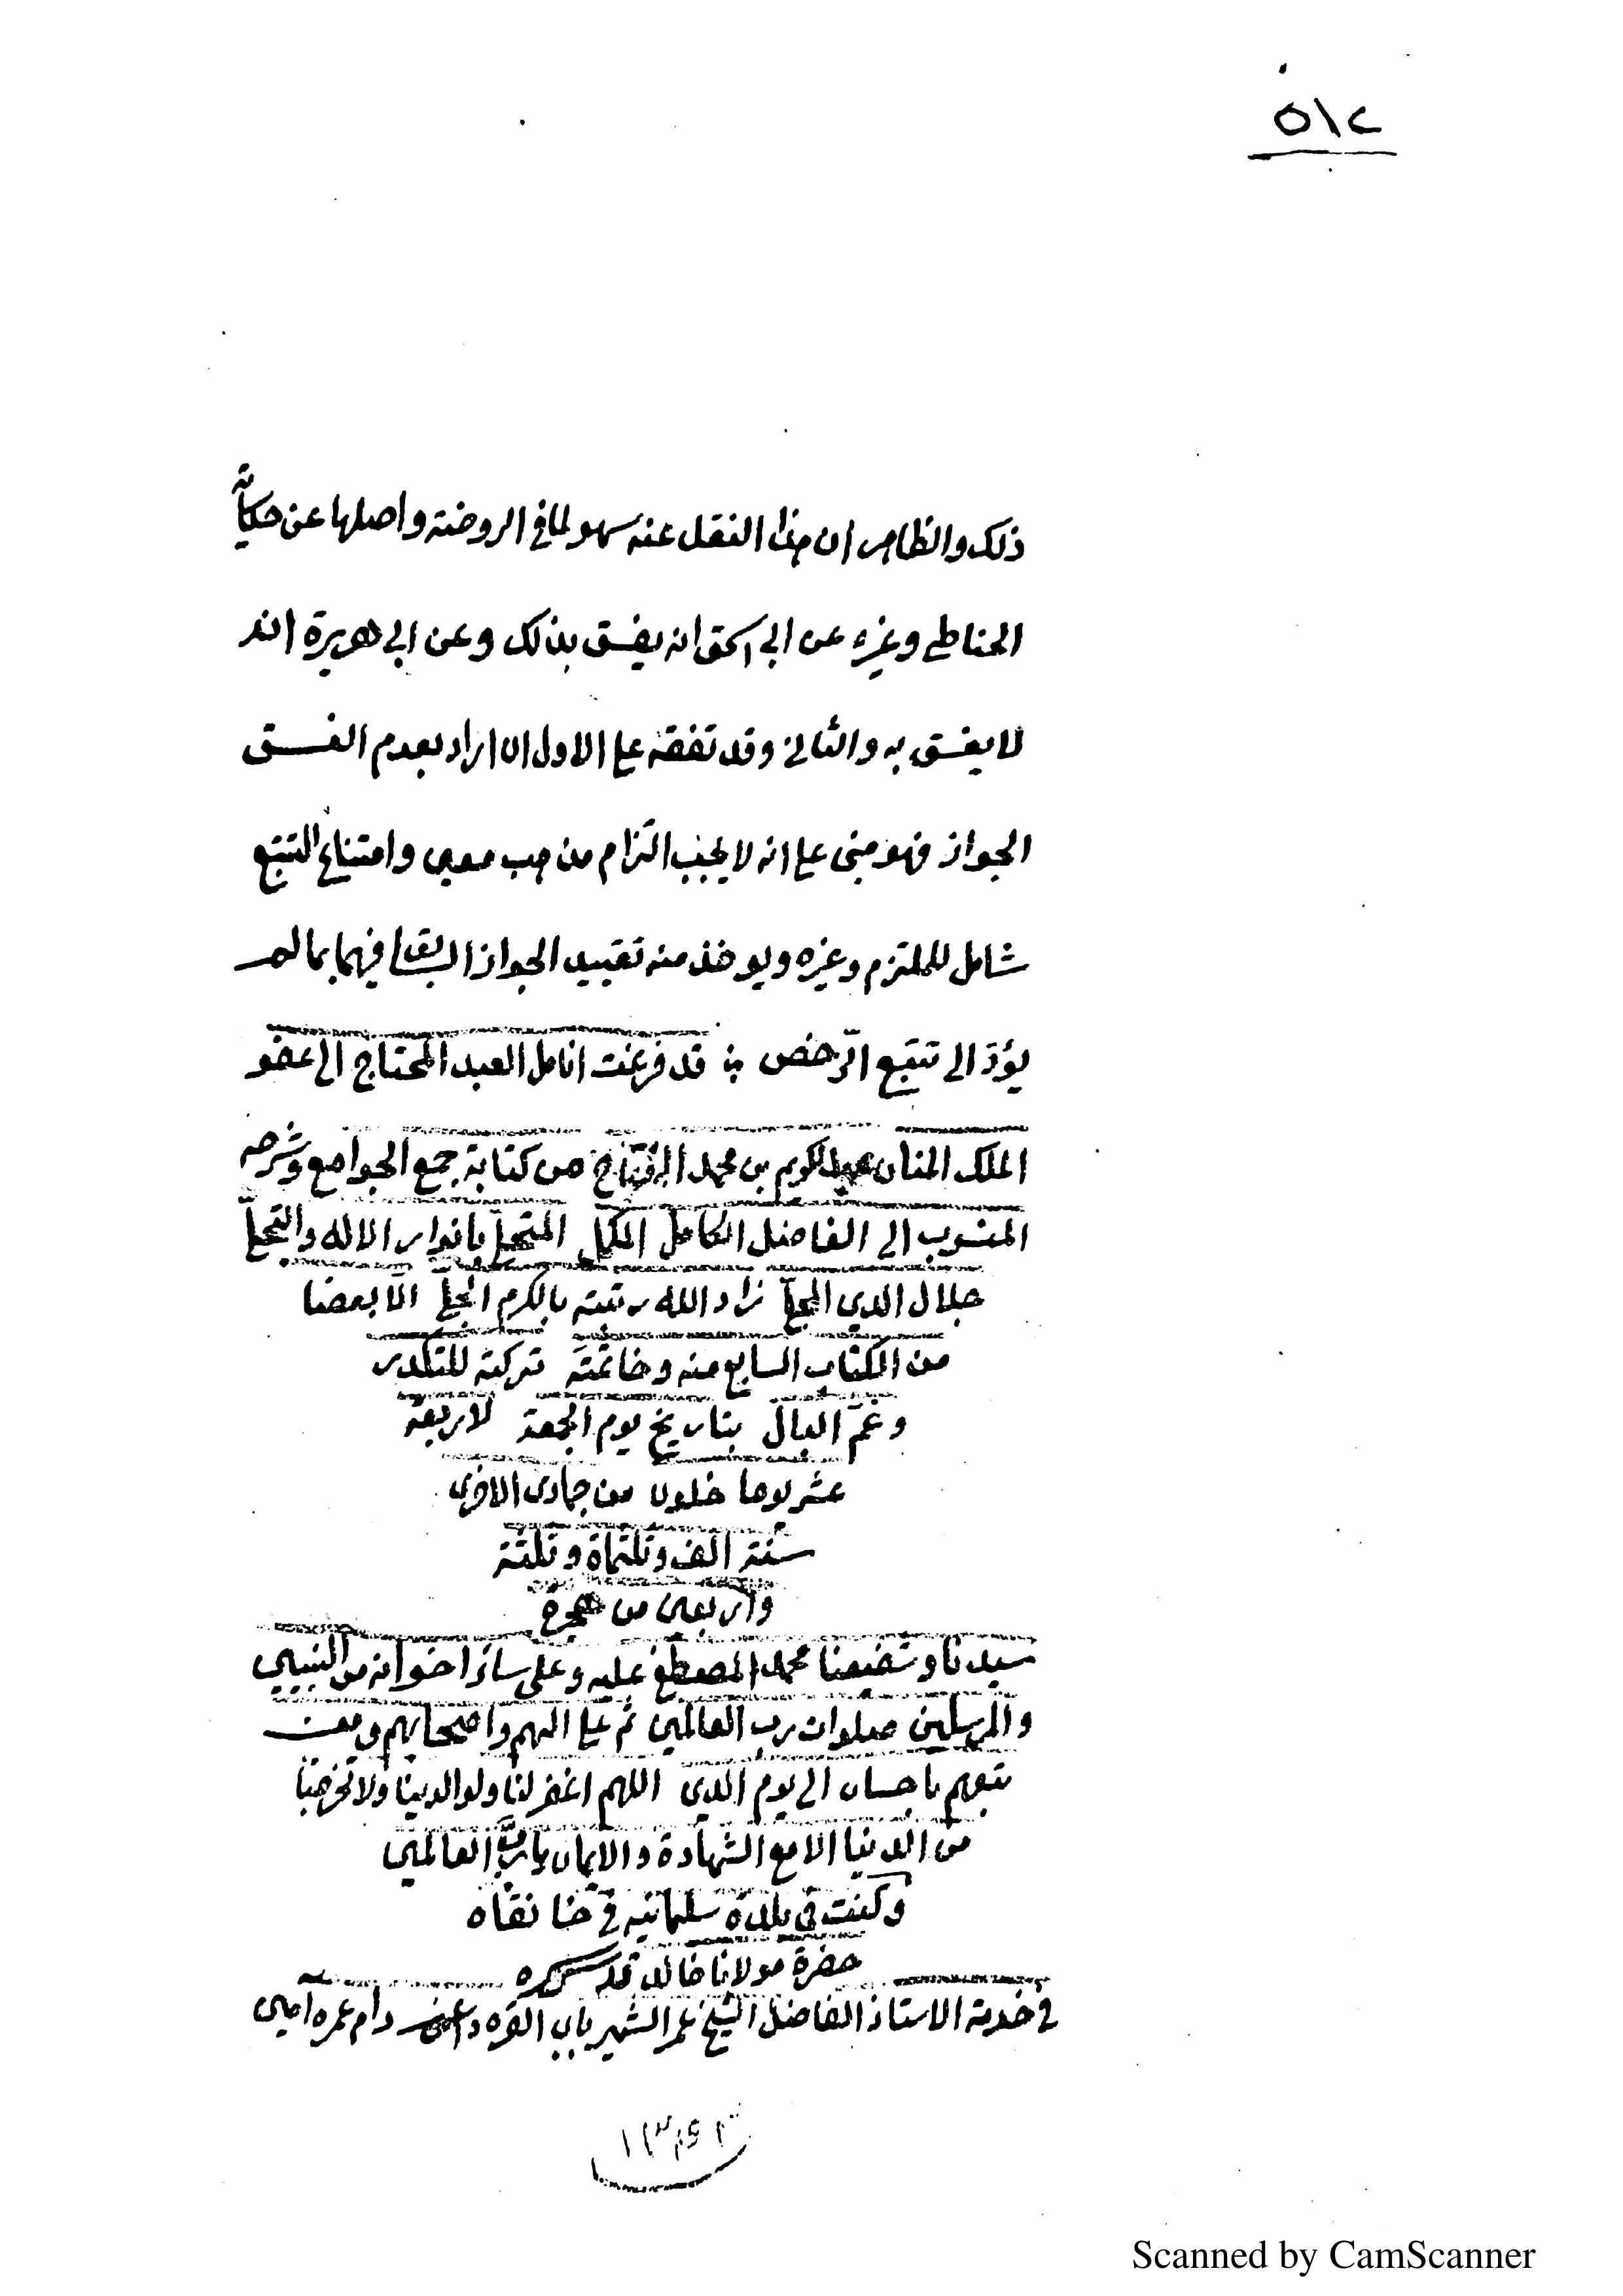 ٥١٤
ذلك والظاهر ان هذا النقل عنه سهو لما في الروضة واصلها عن حكاية
الحناطي وغيره عن ابي اسحق انه يفسق بذلك وعن ابي هريرة انه
لا يفسق به والثاني وقد تفقه على الاول ان اراد بعدم الفسق
الجواز فهو مبنى على انه لا يجب التزام مذهب معين وامتناع التتبع
شامل للملتزم وغيره ويوخذ منه تقييد الجواز السابق فيهما بما لم
يؤد الى تتبع الرّخص قد فرغت انامل العبد المحتاج الى عفو
الملك المنان عبدالكريم بن محمد من كتابة جمع الجوامع وشرحه
المنسوب الى الفاضل الكامل المكمل المتحلّ بانوار الاله والتجلّ
جلال الدين المحلّ زاد الله رتبته بالكرم الجلي الا بعضا
من الكتاب السابع منه وخاتمته تركته للتكدر
وغمّ البال بتاريخ يوم الجمعة لاربعة
عشر يوما خلون من جمادى الاخرى
سنة الف وثلثماة وثلثة
واربعين من هجرة
سيدنا وشفيعنا محمد المصطفى عليه وعلى سائر اخوانه من النبيين
والمرسلين صلوات رب العالمين ثم على الهم واصحابهم ومن
تبعهم باحسان الى يوم الدين اللهم اغفر لنا ولوالدينا ولا تخرجنا
من الدنيا الا مع الشهادة والايمان يا ربّ العالمين
وكنت في بلدة سليمانيه في خانقاه
حضرة مولانا خالد قدس سره
في خدمة الاستاذ الفاضل الشيخ عمر الشهير بابن القره داغى دام عمره امين
١٣٤٣
Scanned by CamScanner